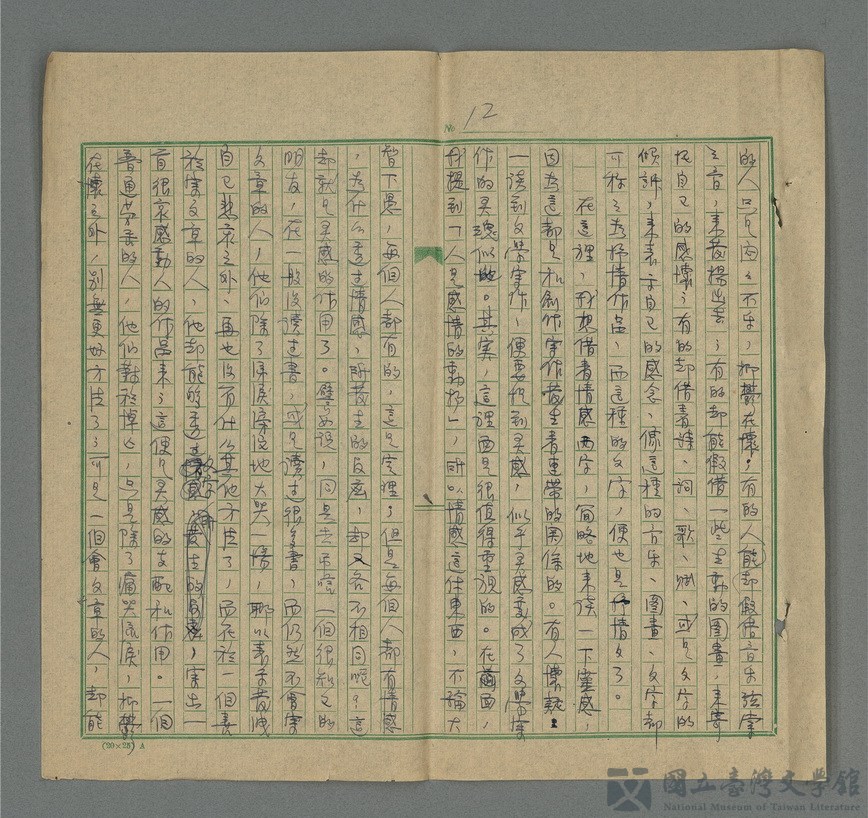 № 12
的人只是內心不樂，抑鬱在懷；有的人能卻假借音樂弦律
之音，來發揚出去；有的卻能假借一些生動的圖畫，來寄
托自己的感懷；有的卻借著詩、詞、歌、賦、或是文字的
傾訴，來表示自己的感念、像這種的音樂、圖畫、文字都
可称之為抒情作品，而這種的文字，便也是抒情文了。
在這裡，我想借着情感兩字，簡略地來談一下靈感，
因為這都是和創作寫作發生着連帶的関係的。有人懷疑：
一談到文學寫作，便要提到灵感，似乎灵感变成了文學寫
作的灵魂似地。其实，這裡面是很值得重視的。在前面，
我提到「人是感情的動物」，所以情感這件東西，不論大
智下愚，每個人都有的，這是实理；但是每個人都有情感
，為什么透过情感，所發生的反应，却又各不相同呢？這
却就是灵感的作用了。譬如說，同是去吊唁一個很知交的
朋友，在一般沒讀过書，或是讀过很多書，而仍然不會寫
文章的人，他们除了淚淚滂沱地大哭一場，聊以表示發洩
自己悲哀之外，再也沒有什么其他方法了，而在於一個善
於寫文章的人，他却能够透过文字，寫出一
首很哀感動人的作品來；這便是灵感的支配和作用。一個
普通学养的人，他们對於悼亡，只是除了痛哭流淚，抑鬱
在懷之外，別無更好方法了；可是一個會文章的人，却能
(20×25) A
國立臺灣文學館
National Museum of Taiwan Literature